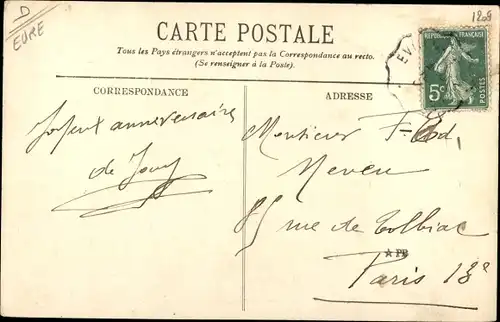 D
EURE
1209
CARTE POSTALE
Tous les Pays étrangers n'acceptent pas la Correspondance au recto.
(Se renseigner à la Poste).
CORRESPONDANCE
ADRESSE
EV
RÉPUBLIQUE FRANÇAISE
5c
POSTES
Joyeux anniversaire
de Jouy
Monsieur
Neveu
85 rue de Tolbiac
PR
Paris 13e